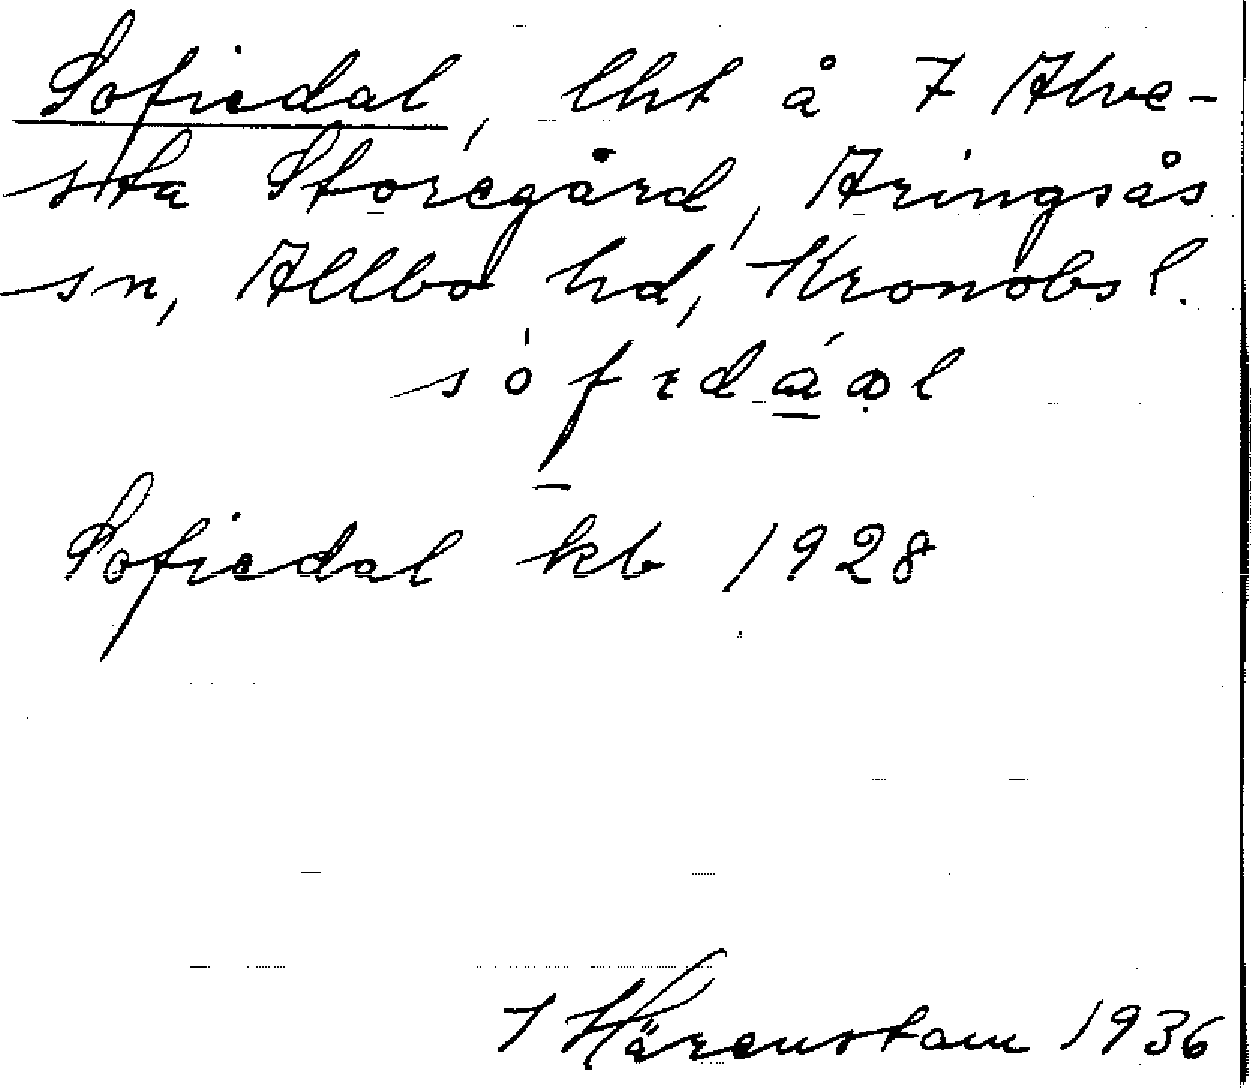 Sofiedal, lht å 7 Alve-
sta Storegård, Aringsås
sn, Allbo hd, Kronobs l.
sófɩdàɑl
Sofiedal kb 1928
J Härenstam 1936